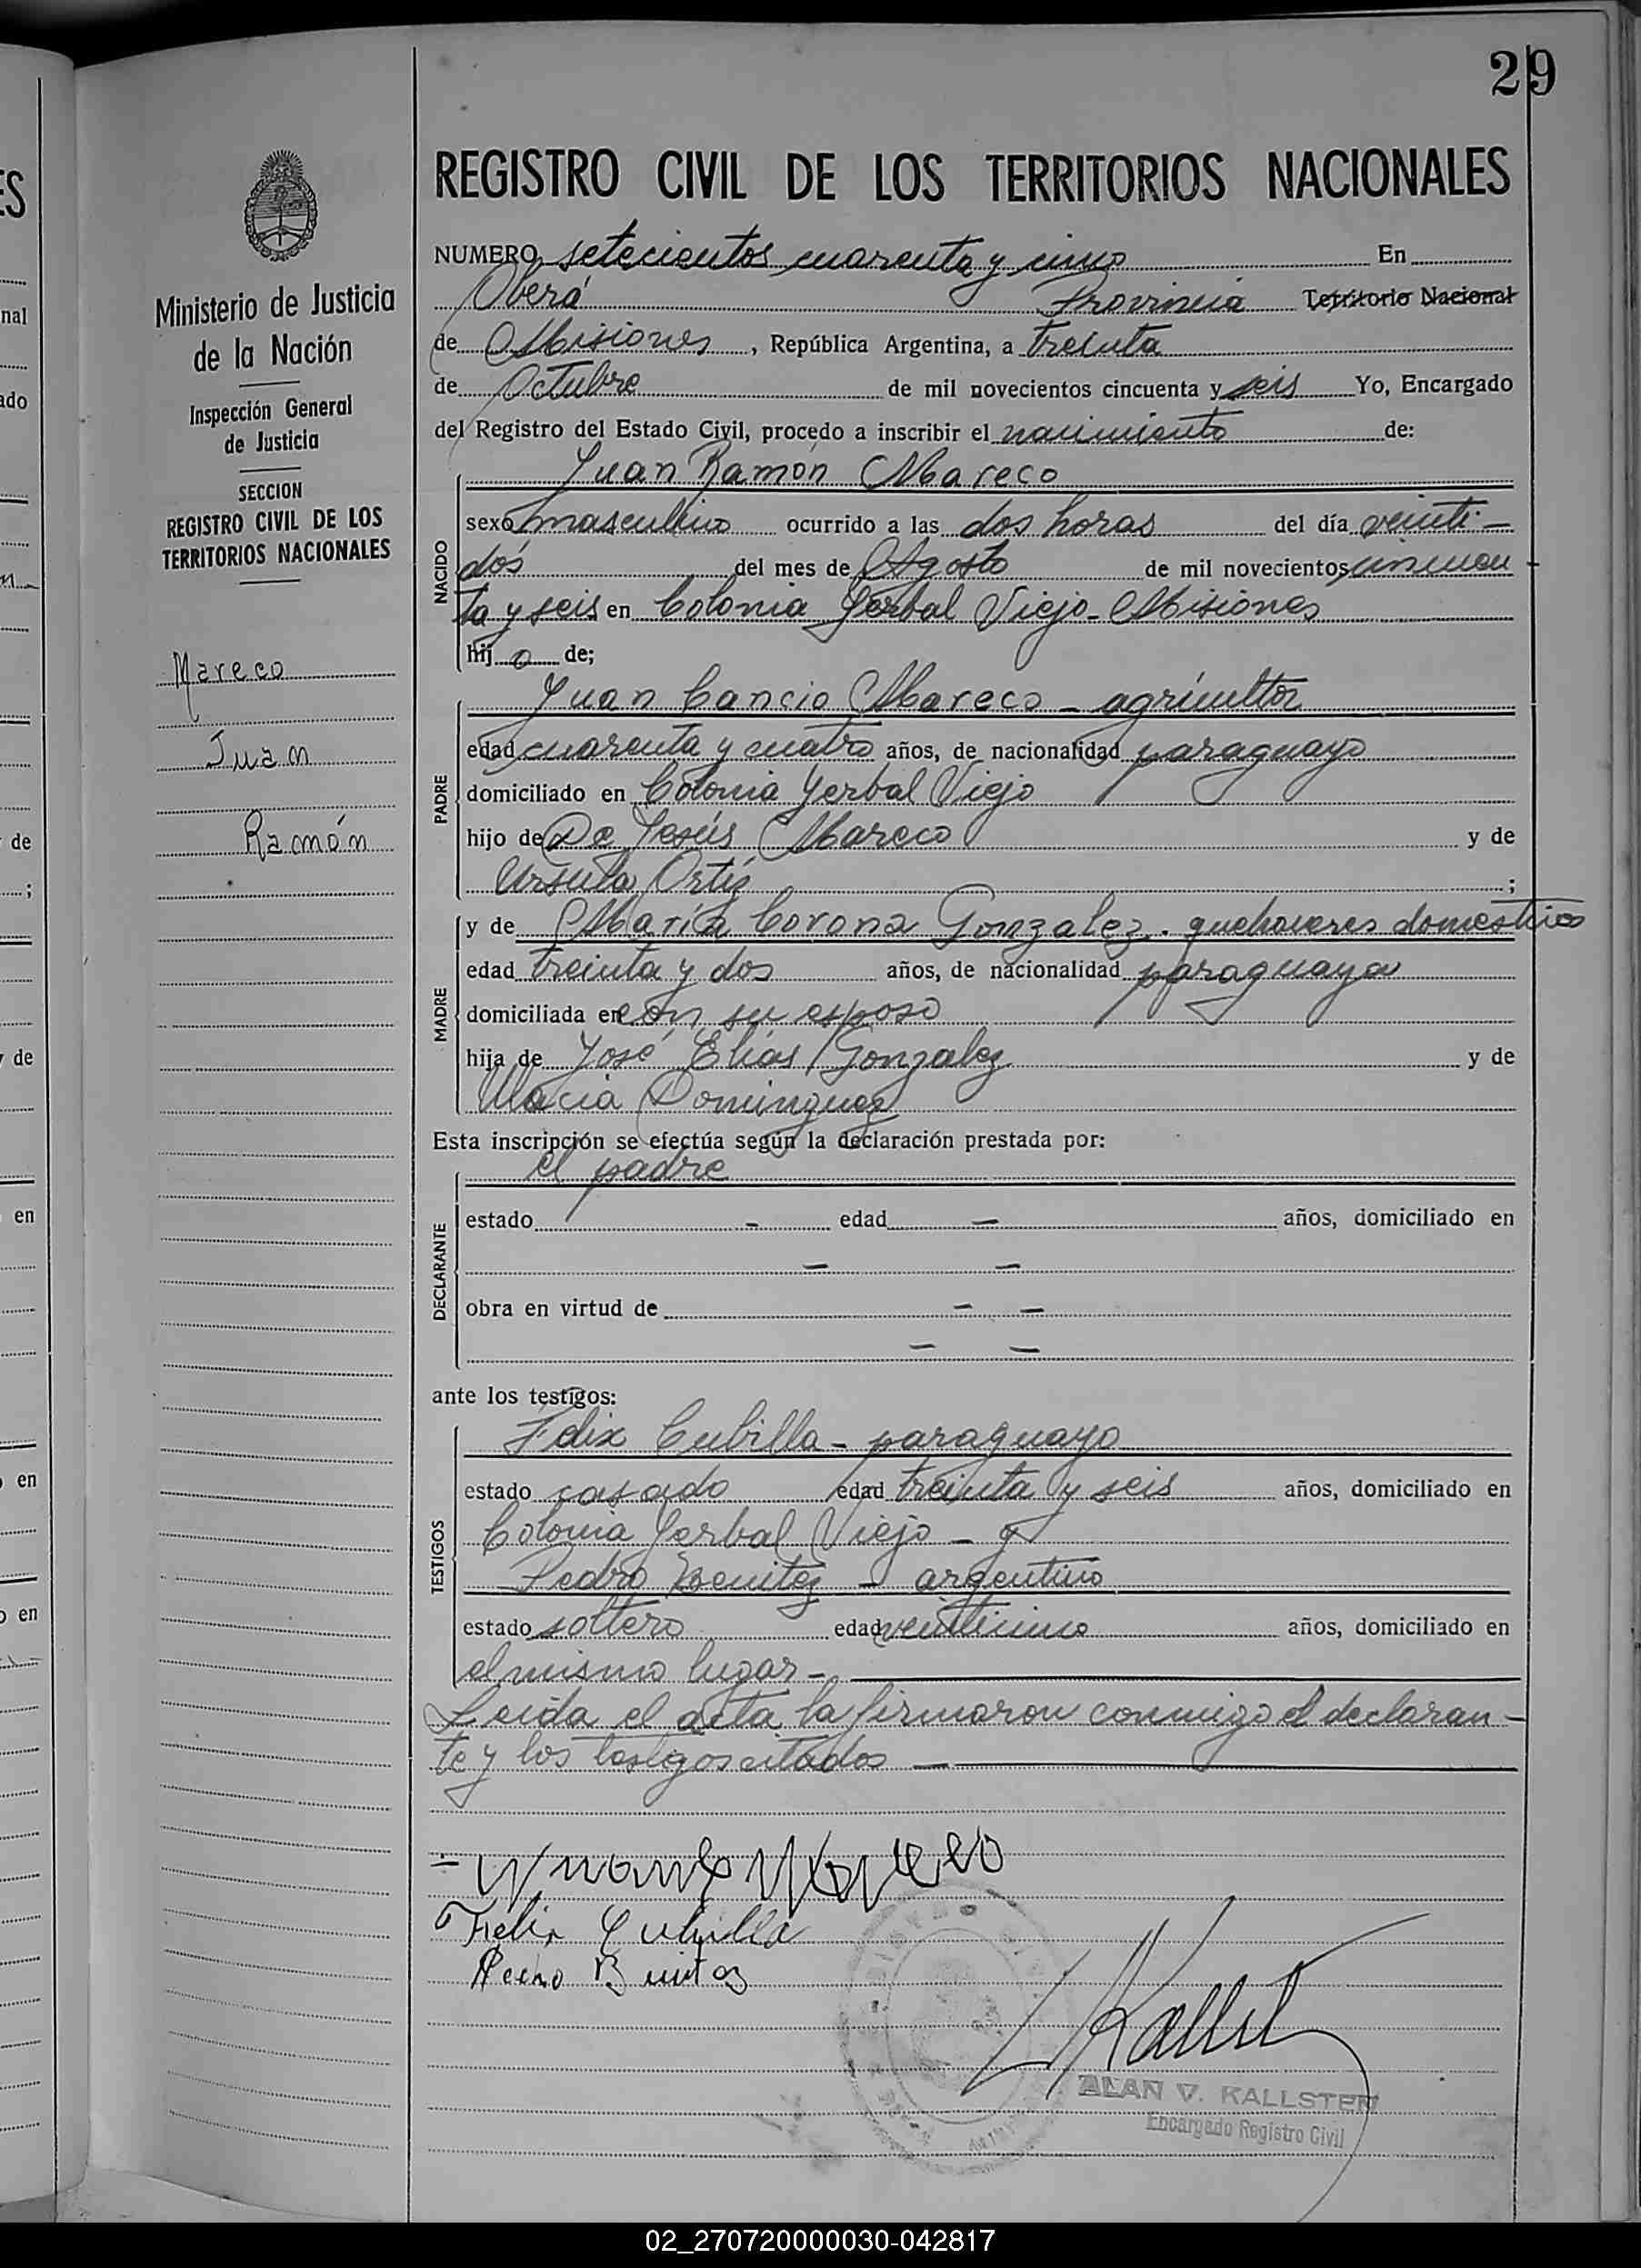 29
REGISTRO CIVIL DE LOS TERRITORIOS NACIONALES
NUMERO setecientos cuarenta y cinco En
Oberá Provincia Territorio Nacional
de Misiones, República Argentina, a treinta
de Octubre de mil novecientos cincuenta y seis Yo, Encargado
del Registro del Estado Civil, procedo a inscribir el nacimiento de:
Juan Ramón Mareco
NACIDO
sexo masculino ocurrido a las dos horas del día veinti-
dós del mes de Agosto de mil novecientos cincuen
ta y seis en Colonia Yerbal Viejo - Misiones
hijo de;
Juan Cancio Mareco - agricultor
PADRE
edad cuarenta y cuatro años, de nacionalidad paraguayo
domiciliado en Colonia Yerbal Viejo
hijo de De Jesús Mareco y de
Ursula Ortiz ;
y de María Corona Gonzalez. quehaceres domesticos
MADRE
edad treinta y dos años, de nacionalidad paraguaya
domiciliada en con su esposo
hija de José Elías Gonzalez y de
Dominguez
Esta inscripción se efectúa según la declaración prestada por:
el padre
DECLARANTE
estado - edad - años, domiciliado en
- -
obra en virtud de - -
- -
ante los testigos:
Felix Cubilla - paraguayo
TESTIGOS
estado casado edad treinta y seis años, domiciliado en
Colonia Yerbal Viejo - y
Pedro Benitez - argentino
estado soltero edad veinticinco años, domiciliado en
el mismo lugar -
Leída el acta la firmaron conmigo el declaran-
te y los testigos citados -
Mareco
Felix Cubilla
ALAN V. KALLSTEN
Encargado Registro Civil
Ministerio de Justicia
de la Nación
Inspección General
de Justicia
SECCION
REGISTRO CIVIL DE LOS
TERRITORIOS NACIONALES
Mareco
Juan
Ramón
ES
nal
ado
de
;
de
en
en
en
02_270720000030-042817